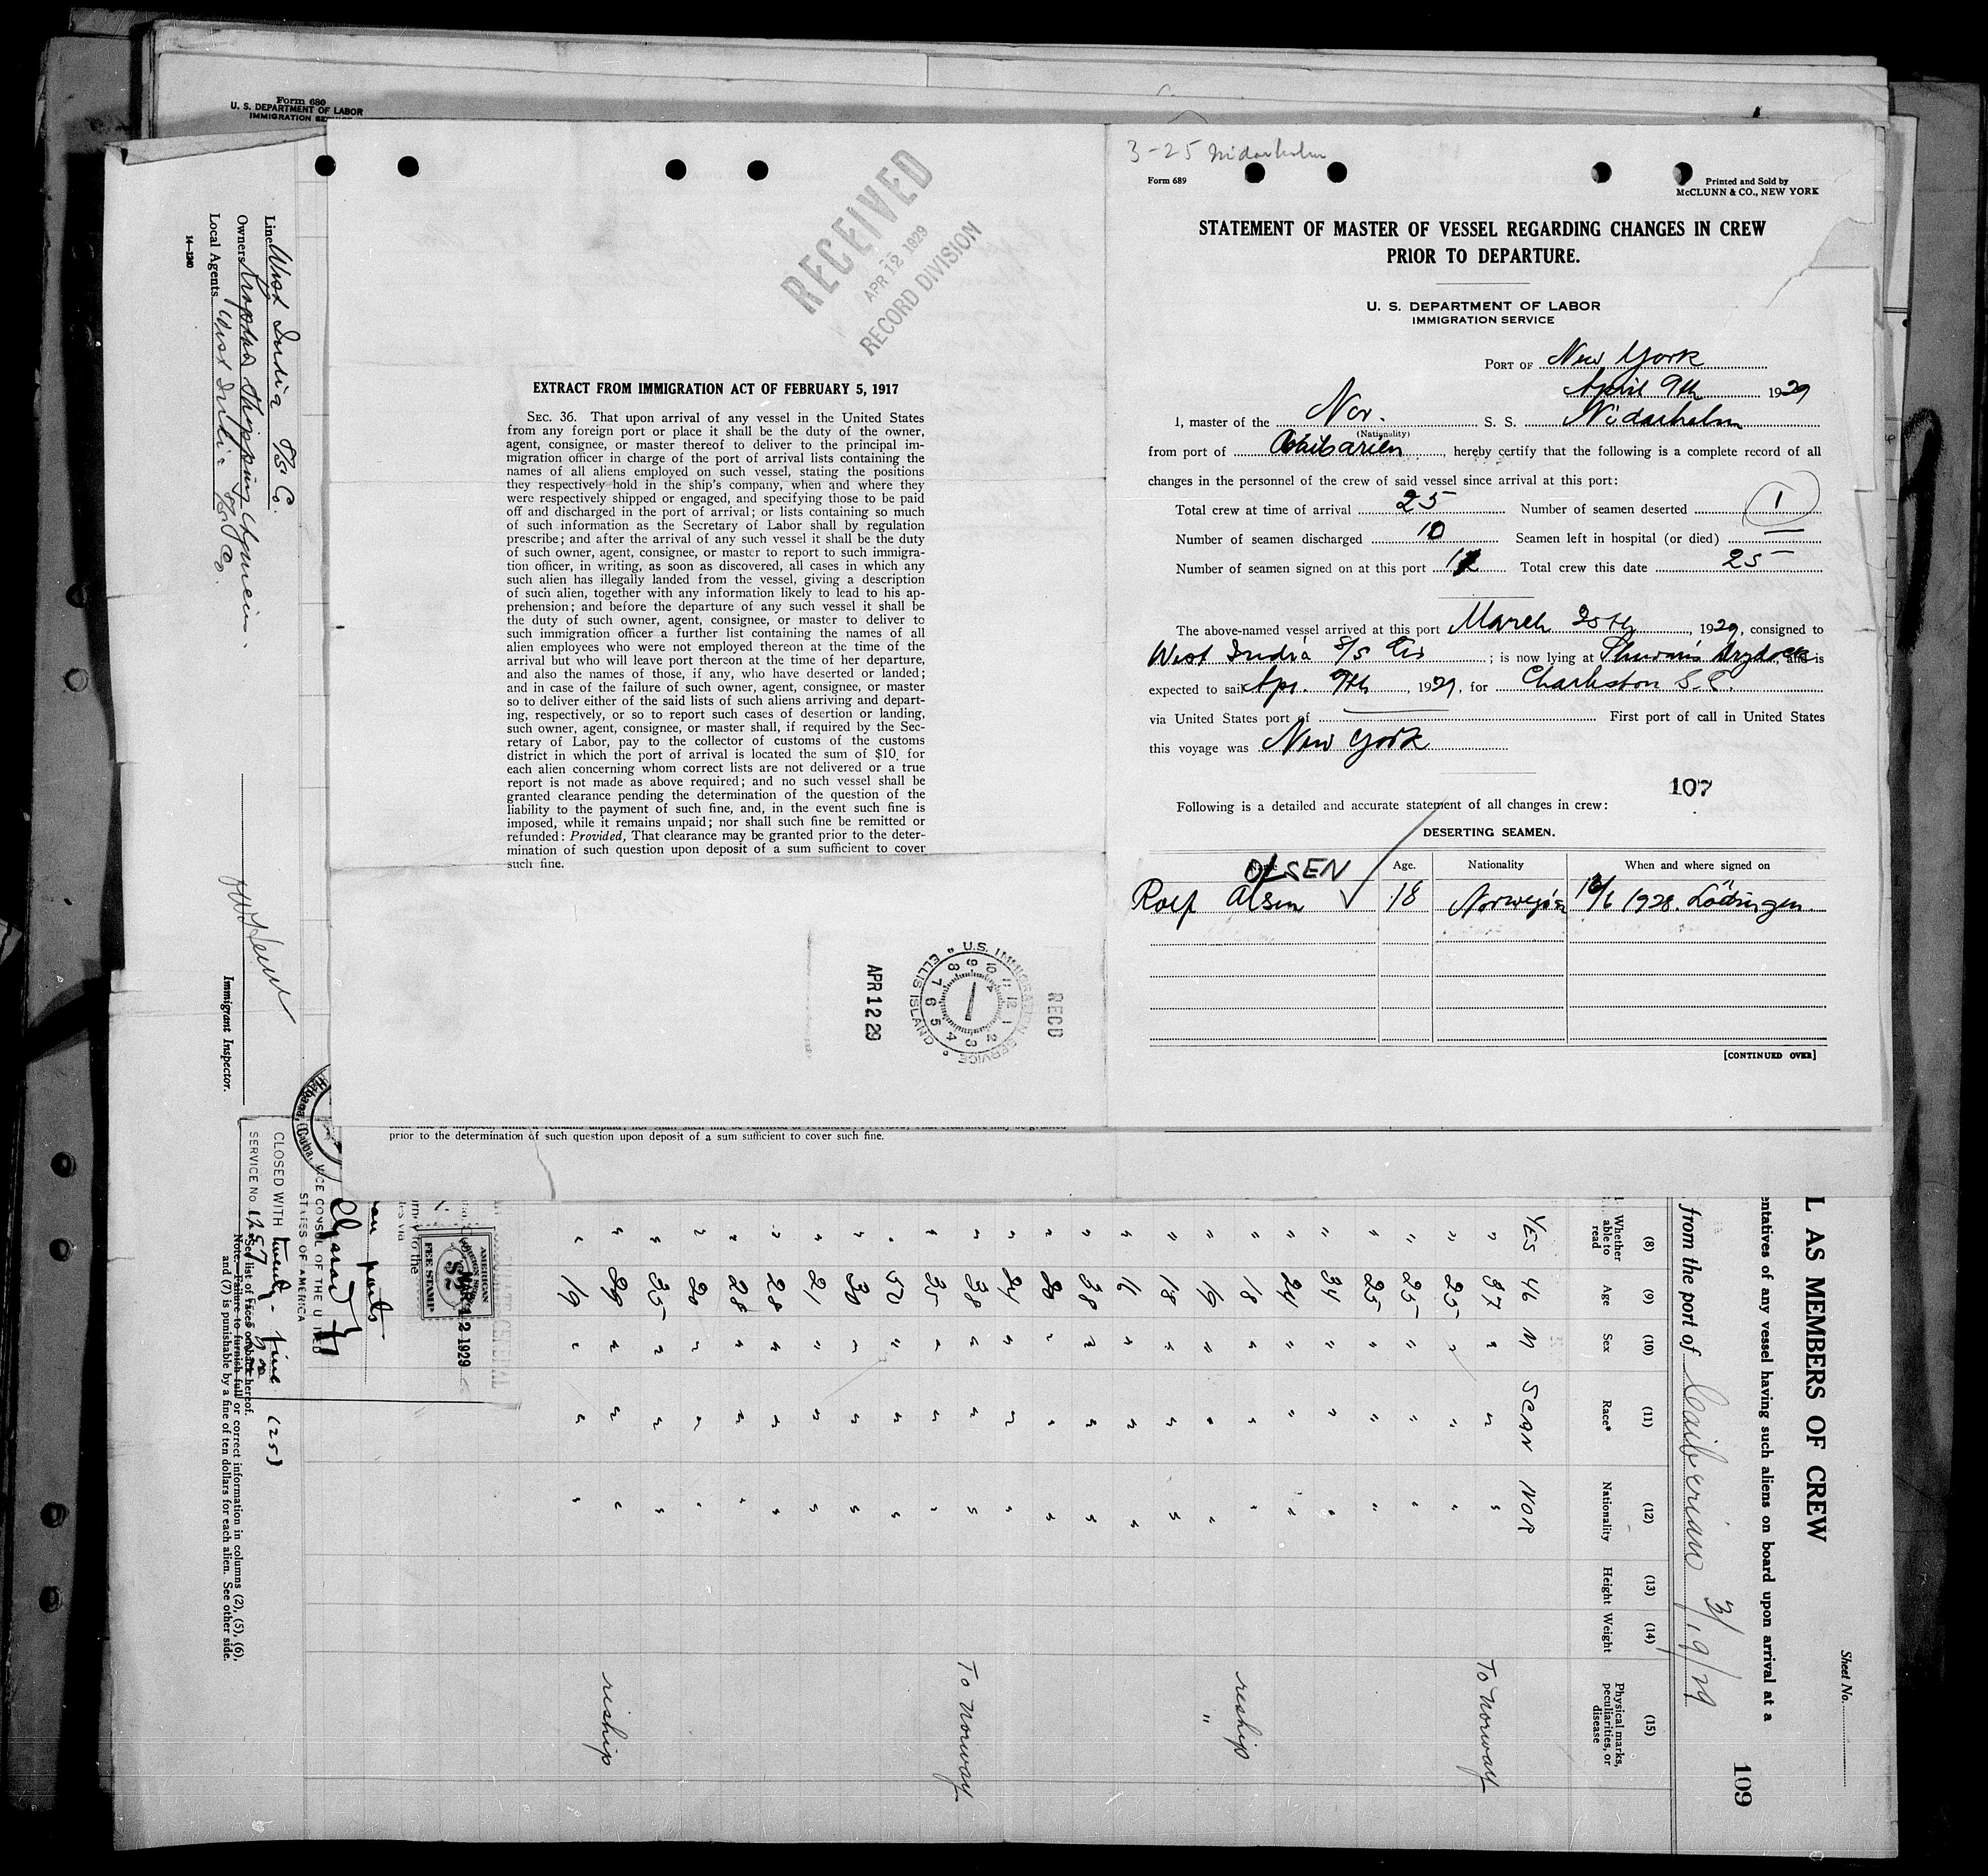 Form 680
U. S. DEPARTMENT OF LABOR
IMMIGRATION
Line West India S/S Co.
Owners Shipping
Local Agents West India S/S Co.
14—1240
Immigrant Inspector.
RECEIVED
APR 12 1929
RECORD DIVISION
EXTRACT FROM IMMIGRATION ACT OF FEBRUARY 5, 1917
SEC. 36. That upon arrival of any vessel in the United States
from any foreign port or place it shall be the duty of the owner,
agent, consignee, or master thereof to deliver to the principal im-
migration officer in charge of the port of arrival lists containing the
names of all aliens employed on such vessel, stating the positions
they respectively hold in the ship's company, when and where they
were respectively shipped or engaged, and specifying those to be paid
off and discharged in the port of arrival; or lists containing so much
of such information as the Secretary of Labor shall by regulation
prescribe; and after the arrival of any such vessel it shall be the duty
of such owner, agent, consignee, or master to report to such immigra-
tion officer, in writing, as soon as discovered, all cases in which any
such alien has illegally landed from the vessel, giving a description
of such alien, together with any information likely to lead to his ap-
prehension; and before the departure of any such vessel it shall be
the duty of such owner, agent, consignee, or master to deliver to
such immigration officer a further list containing the names of all
alien employees who were not employed thereon at the time of the
arrival but who will leave port thereon at the time of her departure,
and also the names of those, if any, who have deserted or landed;
and in case of the failure of such owner, agent, consignee, or master
so to deliver either of the said lists of such aliens arriving and depart-
ing, respectively, or so to report such cases of desertion or landing,
such owner, agent, consignee, or master shall, if required by the Sec-
retary of Labor, pay to the collector of customs of the customs
district in which the port of arrival is located the sum of $10 for
each alien concerning whom correct lists are not delivered or a true
report is not made as above required; and no such vessel shall be
granted clearance pending the determination of the question of the
liability to the payment of such fine, and, in the event such fine is
imposed, while it remains unpaid; nor shall such fine be remitted or
refunded: Provided, That clearance may be granted prior to the deter-
mination of such question upon deposit of a sum sufficient to cover
such fine.
APR 12 29
U.S. IMMIGRATION SERVICE
ELLIS ISLAND
RECD
prior to the determination of such question upon deposit of a sum sufficient to cover such fine.
3-25 Nidarholm
Form 689
Printed and Sold by
McCLUNN & CO., NEW YORK
STATEMENT OF MASTER OF VESSEL REGARDING CHANGES IN CREW
PRIOR TO DEPARTURE.
U. S. DEPARTMENT OF LABOR
IMMIGRATION SERVICE
PORT OF New York
April 9th 1929
I, master of the Nor. S. S. Nidarholm
(Nationality)
from port of Caibarien, hereby certify that the following is a complete record of all
changes in the personnel of the crew of said vessel since arrival at this port:
Total crew at time of arrival 25 Number of seamen deserted 1
Number of seamen discharged 10 Seamen left in hospital (or died) —
Number of seamen signed on at this port Total crew this date 25
The above-named vessel arrived at this port March 25th, 1929, consigned to
West India S/S Co ; is now lying at Drydock, and is
expected to sail Apr. 9th, 1929, for Charleston S.C.
via United States port of — First port of call in United States
this voyage was New York
107
Following is a detailed and accurate statement of all changes in crew:
DESERTING SEAMEN.
Name Age. Nationality When and where signed on
OLSEN
Rolf Olsen 18 Norwegian /6 1928. Lödingen
[CONTINUED OVER]
L AS MEMBERS OF CREW
Sheet No.
entatives of any vessel having such aliens on board upon arrival at a
109
from the port of Caibarien 3/19/29
(8) (9) (10) (11) (12) (13) (14) (15)
Whether able to read Age Sex Race* Nationality Height Weight Physical marks, peculiarities, or disease
YES 46 M SCAN NOR
" 37 " " " To Norway
" 25 " " "
" 25 " " "
" 25 " " "
" 34 " " "
" 24 " " "
" 18 " " " reship
" 19 " " " "
" 18 " " "
" 16 " " "
" 38 " " "
" 20 " " "
" 24 " " "
" 38 " " " To Norway
" 35 " " "
" 50 " " "
" 30 " " "
" 21 " " "
" 28 " " "
" 28 " " "
" 20 " " "
" 35 " " "
" 29 " " " reship
" 19 " " "
AMERICAN
FEE STAMP
$2
12 1929
Habana, Cuba.
VICE CONSUL OF THE UNITED
STATES OF AMERICA
CLOSED WITH twenty-five (25)
SERVICE No. 1257
*See list of races on back hereof.
Note.—Failure to furnish full or correct information in columns (2), (5), (6),
and (7) is punishable by a fine of ten dollars for each alien. See other side.